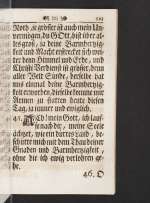 Noth, je grösser ist auch mein Un-
vermögen, du GOtt, bist über al-
les groß, ja deine Barmhertzig-
keit und Macht erstrecket sich we-
ber dem Himmel und Erde, und
Christi Verdienst ist grösser, denn
aller Welt Sünde, derselbe hat
uns einmal deine Barmhertzig-
keit erworben, dieselbe komme mir
Armen zu statten heute diesen
Tag, ja immer und ewiglich.
45. Ach! mein Gott, ich lauf-
fe nach dir, meine Seele
ächzet, wie ein dürres Land, be-
schütte mich mit dem Thau deiner
Gnaden und Barmhertzigkeit,
ohne die ich ewig verlohren ge-
he.
46. O